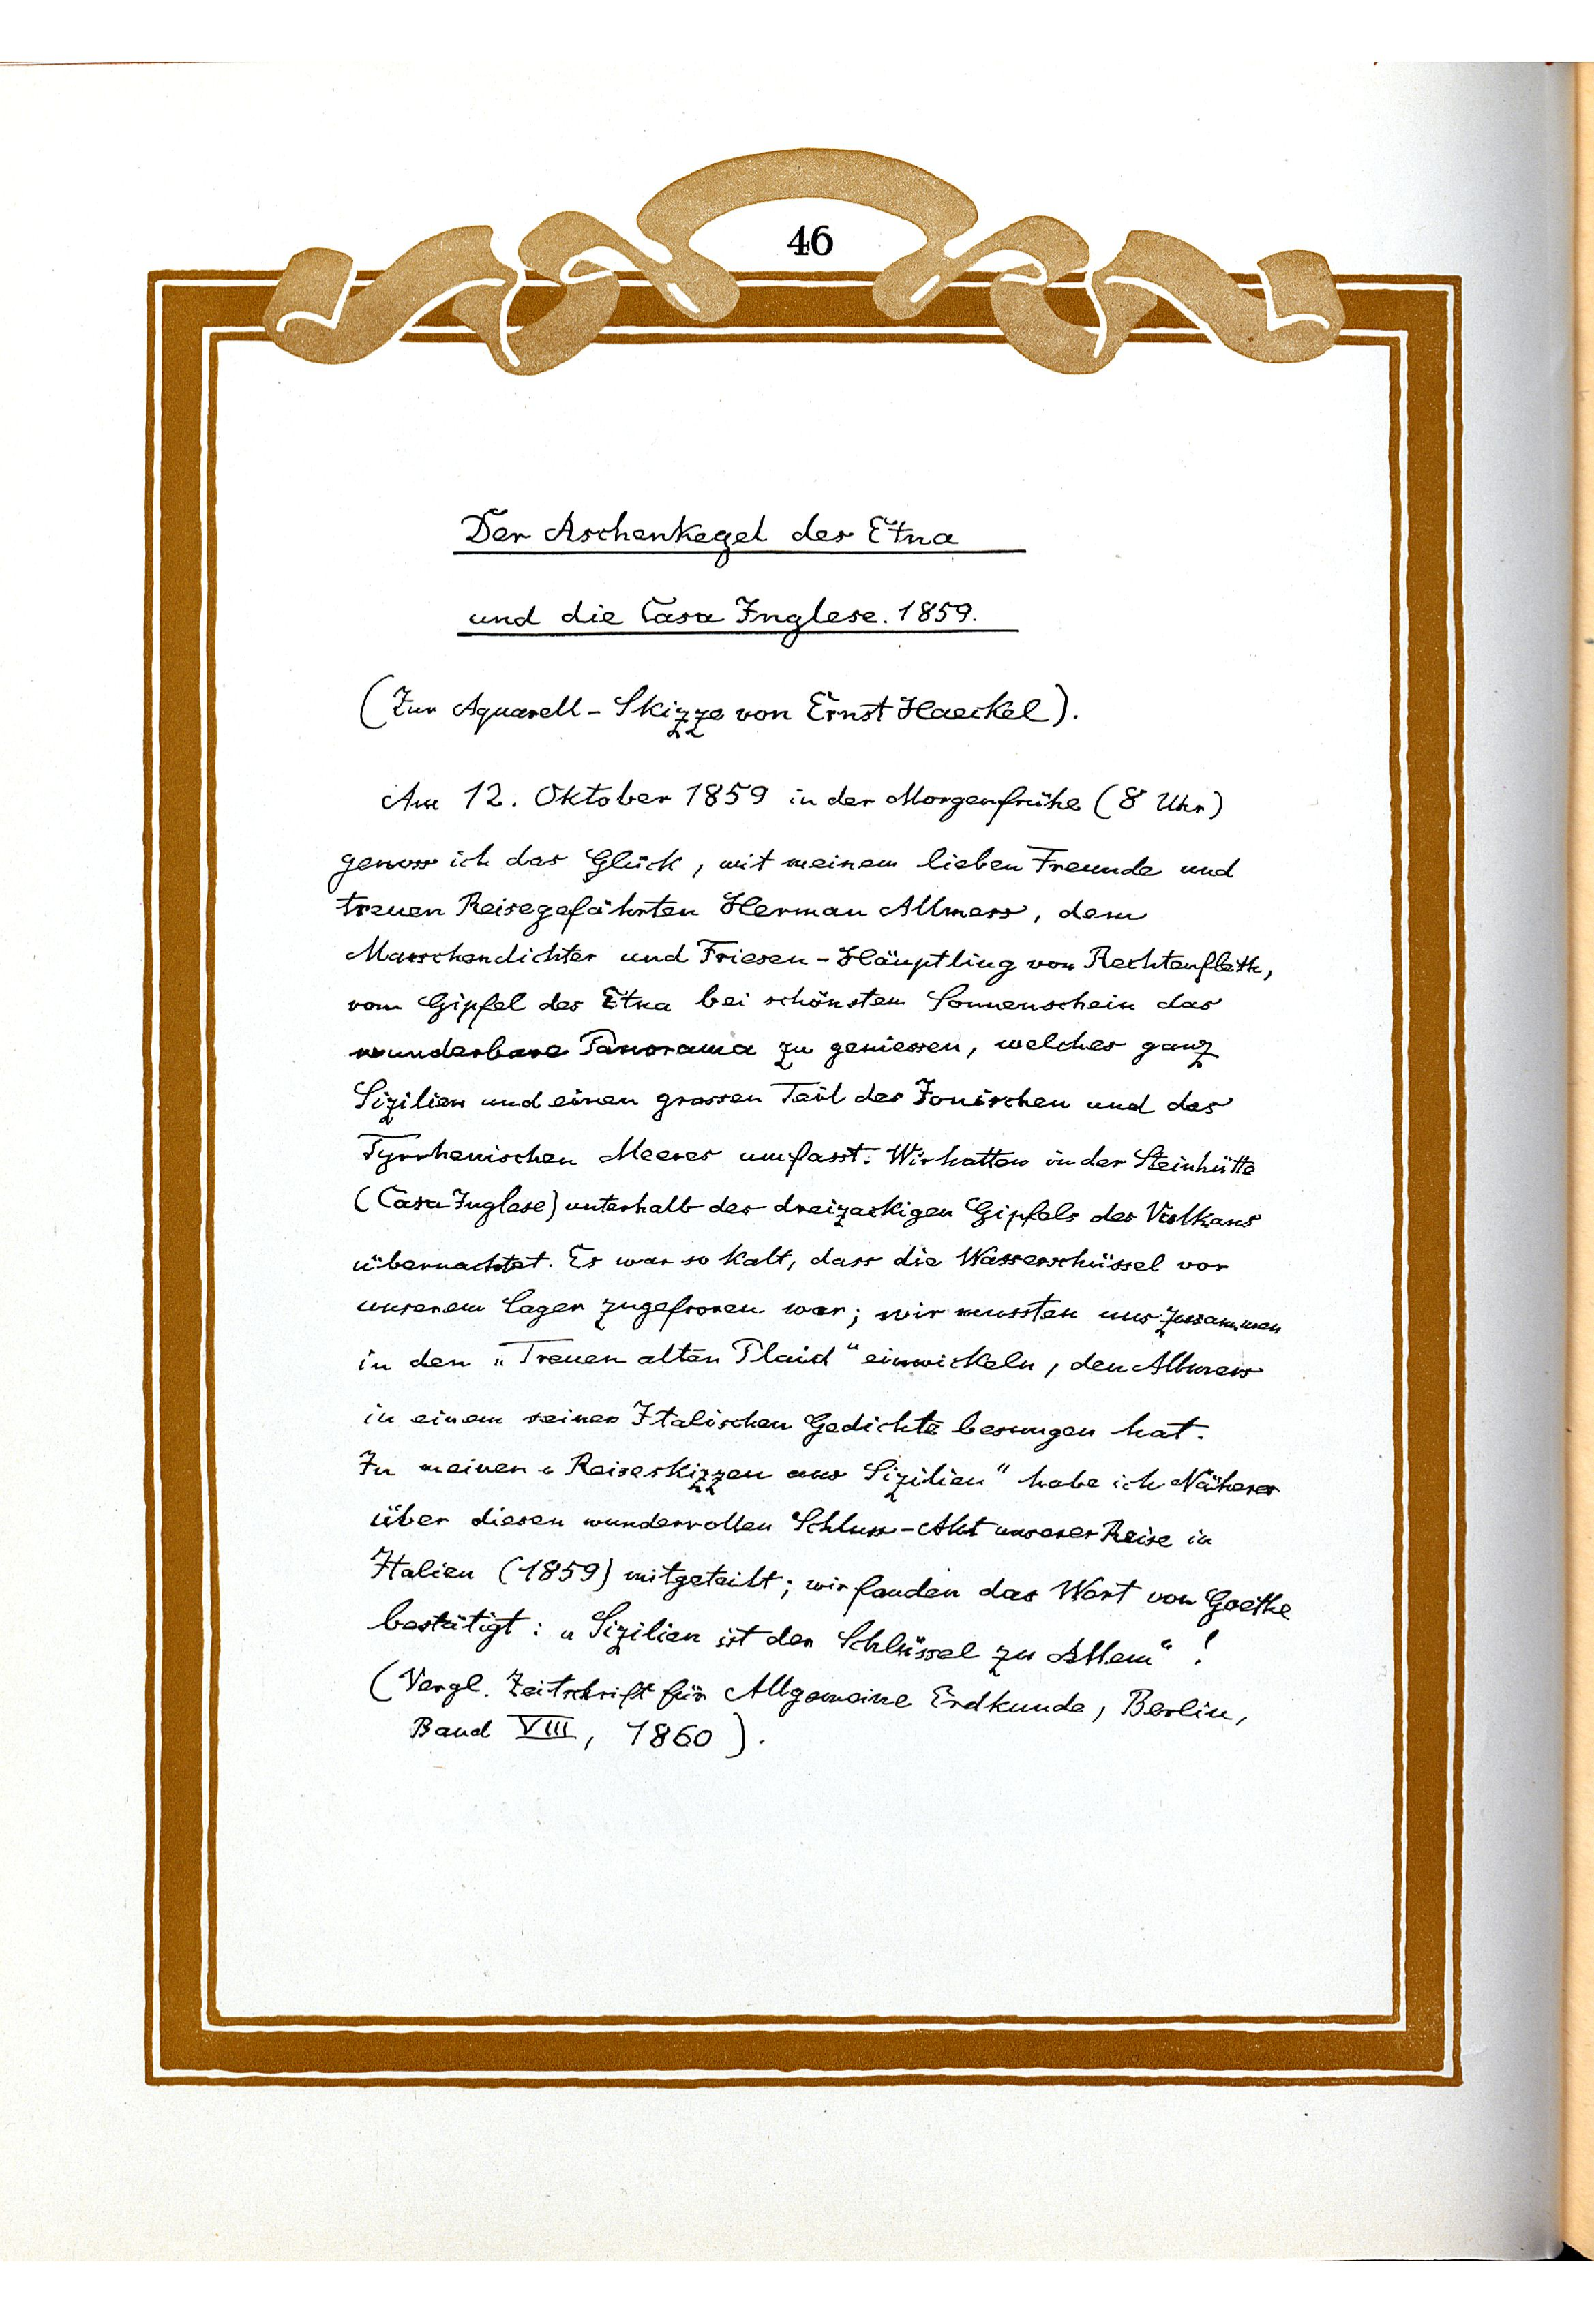 46
Der Aschenkegel des Etna
und die Casa Inglese. 1859.
(Zur Aquarell-Skizze von Ernst Haeckel).
Am 12. Oktober 1859 in der Morgenfrühe (8 Uhr)
genoss ich das Glück, mit meinem lieben Freunde und
treuen Reisegefährten Herman Allmers, dem
Marschendichter und Friesen-Häuptling von Rechtenfleth,
vom Gipfel des Etna bei schönstem Sonnenschein das
wunderbare Panorama zu geniessen, welches ganz
Sizilien und einen grossen Teil des Ionischen und des
Tyrrhenischen Meeres umfasst. Wir hatten in der Steinhütte
(Casa Inglese) unterhalb des dreizackigen Gipfels des Vulkans
übernachtet. Es war so kalt, dass die Wasserschüssel vor
unserem Lager zugefroren war; wir mussten uns zusammen
in den „Treuen alten Plaid“ einwickeln, den Allmers
in einem seiner Italischen Gedichte besungen hat.
In meinen „Reiseskizzen aus Sizilien“ habe ich Näheres
über diesen wundervollen Schluss-Akt unserer Reise in
Italien (1859) mitgeteilt; wir fanden das Wort von Goethe
bestätigt: „Sizilien ist der Schlüssel zu Allem“!
(Vergl. Zeitschrift für Allgemeine Erdkunde, Berlin,
Band VIII, 1860).